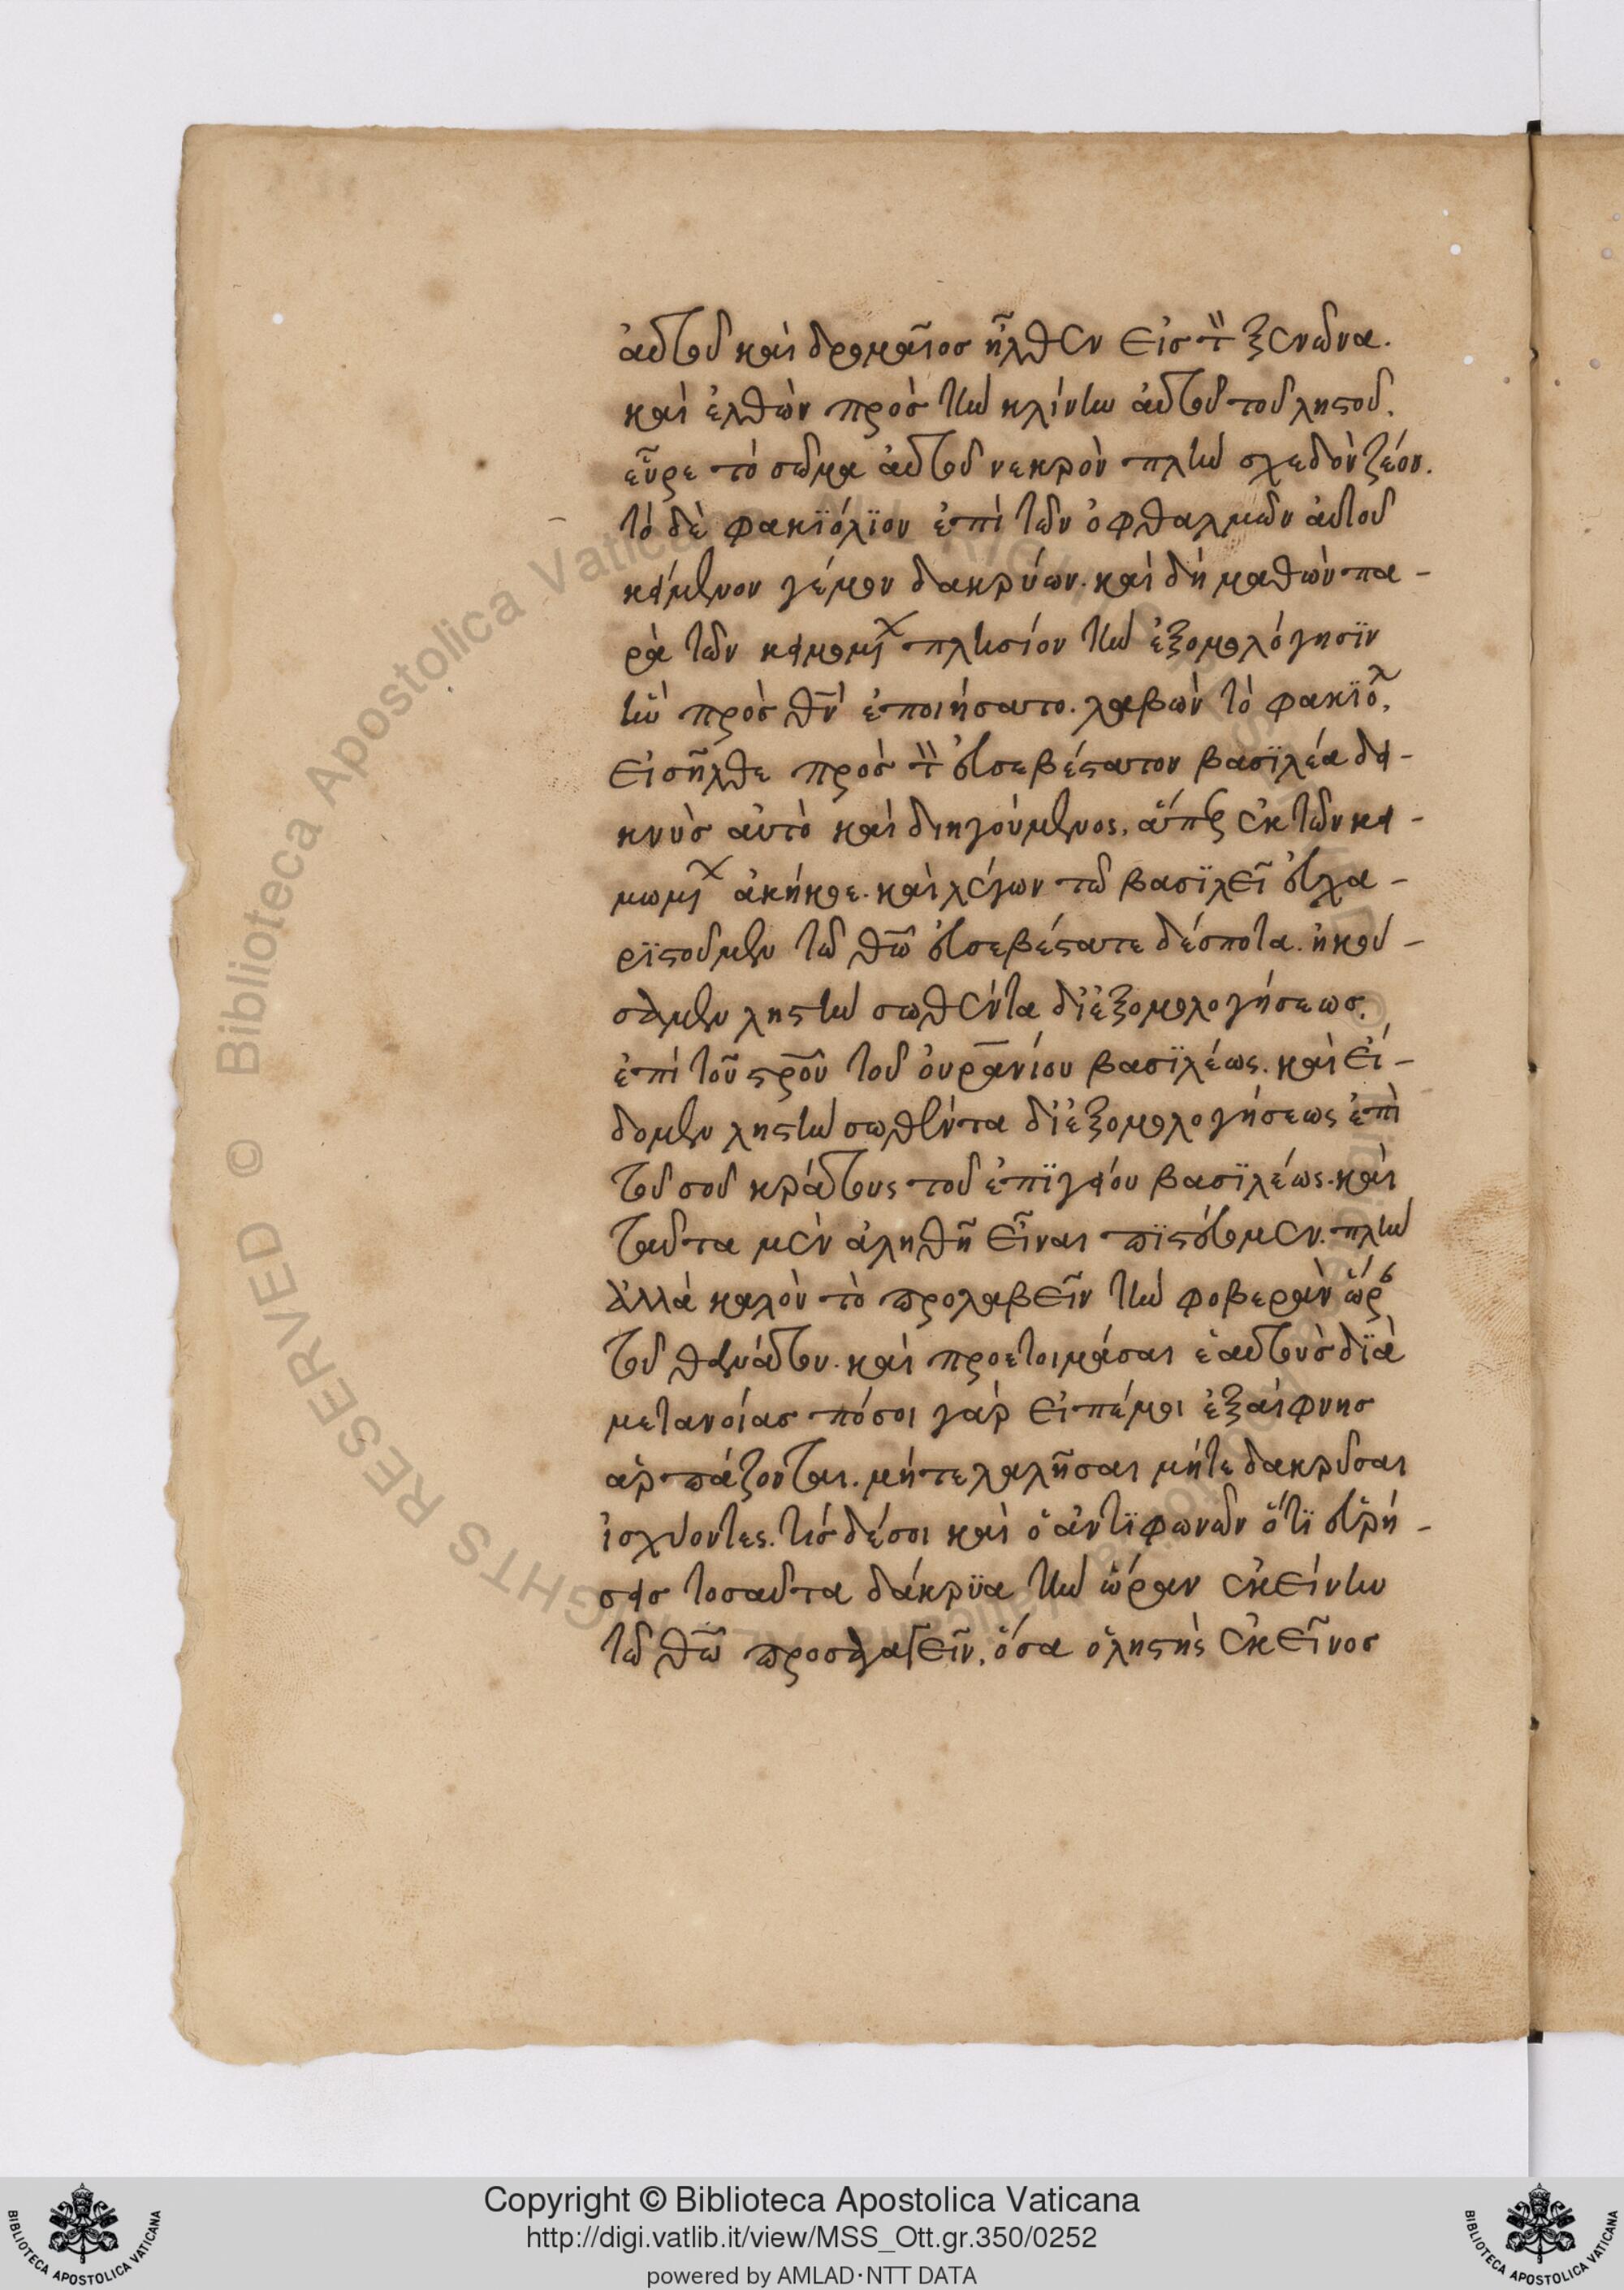 αὐτοῦ καὶ δρομαῖος ἦλθεν εἰς τ̀ ξενῶνα.
καὶ ἐλθὼν πρὸς τὴν κλίνην αὐτοῦ τοῦ ληστοῦ.
εὗρε τὸ σῶμα αὐτοῦ νεκρὸν πλὴν σχεδὸν ζέον.
τὸ δὲ φακϊόλϊον ἐπὶ τῶν ὀφθαλμῶν αὐτοῦ
κείμενον γέμον δακρύων. καὶ δὴ μαθὼν πα-
ρὰ τῶν κειμομ πλησίον τὴν ἐξομολόγησϊν
ἣν πρὸς θν̄ ἐποιήσατο. λαβὼν τὸ φακϊολ,
εἰσῆλθε πρὸς τ̀ εὐσεβέστατον βασϊλέα δει-
κνὺς αὐτὸ καὶ διηγούμενος, ἅπερ ἐκ τῶν κει-
μωμ ἀκήκοε. καὶ λέγων τῶ βασϊλεῖ εὐχα-
ρϊστοῦμεν τῶ θω̄ εὐσεβέστατε δέσποτα. ἠκού-
σαμεν ληστὴν σωθέντα δι' ἐξομολογήσεως.
ἐπὶ τοῦ στρο̄υ τοῦ οὐρανίου βασϊλέως. καὶ εἴ-
δομεν ληστὴν σωθέντα δι' ἐξομολογήσεως ἐπὶ
τοῦ σοῦ κράτους τοῦ ἐπϊγείου βασϊλέως. καὶ
ταῦτα μὲν ἀληθῆ εἶναι πϊστεύομεν. πλὴν
ἀλλὰ καλὸν τὸ προλαβεῖν τὴν φοβερὰν ὥρ
τοῦ θανάτου. καὶ προετοιμάσαι ἑαυτοὺς δϊὰ
μετανοίας πόσοι γὰρ εἰπέμοι ἐξαίφνης
ἁρπάζονται. μήτε λαλῆσαι μήτε δακρῦσαι
ἰσχύοντες. τίς δέσοι καὶ ὁ ἀντϊφωνῶν ὅτϊ εὑρή-
σεις τοσαῦτα δάκρϋα τὴν ὥραν ἐκείνην
τῶ θω̄ προσαγαγεῖν, ὅσα ὁ ληστὴς ἐκεῖνος
Copyright © Biblioteca Apostolica Vaticana
http://digi.vatlib.it/view/MSS_Ott.gr.350/0252
powered by AMLAD·NTT DATA
BIBLIOTECA APOSTOLICA VATICANA
BIBLIOTECA APOSTOLICA VATICANA